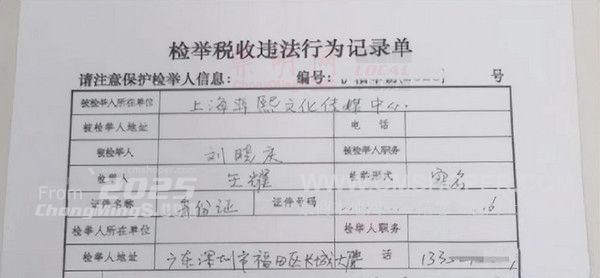 检举税收违法行为记录单
请注意保护检举人信息: 编号: 号
被检举人所在单位 上海 熙文化传媒中心
被检举人地址 电 话
被检举人 刘晓庆 被检举人职务
检举人 王耀 检举形式 实名
证件名称 身份证 证件号码 6
检举人所在单位 检举人职务
检举人地址 广东深圳市福田区长城大厦 电 话 133
From 2025